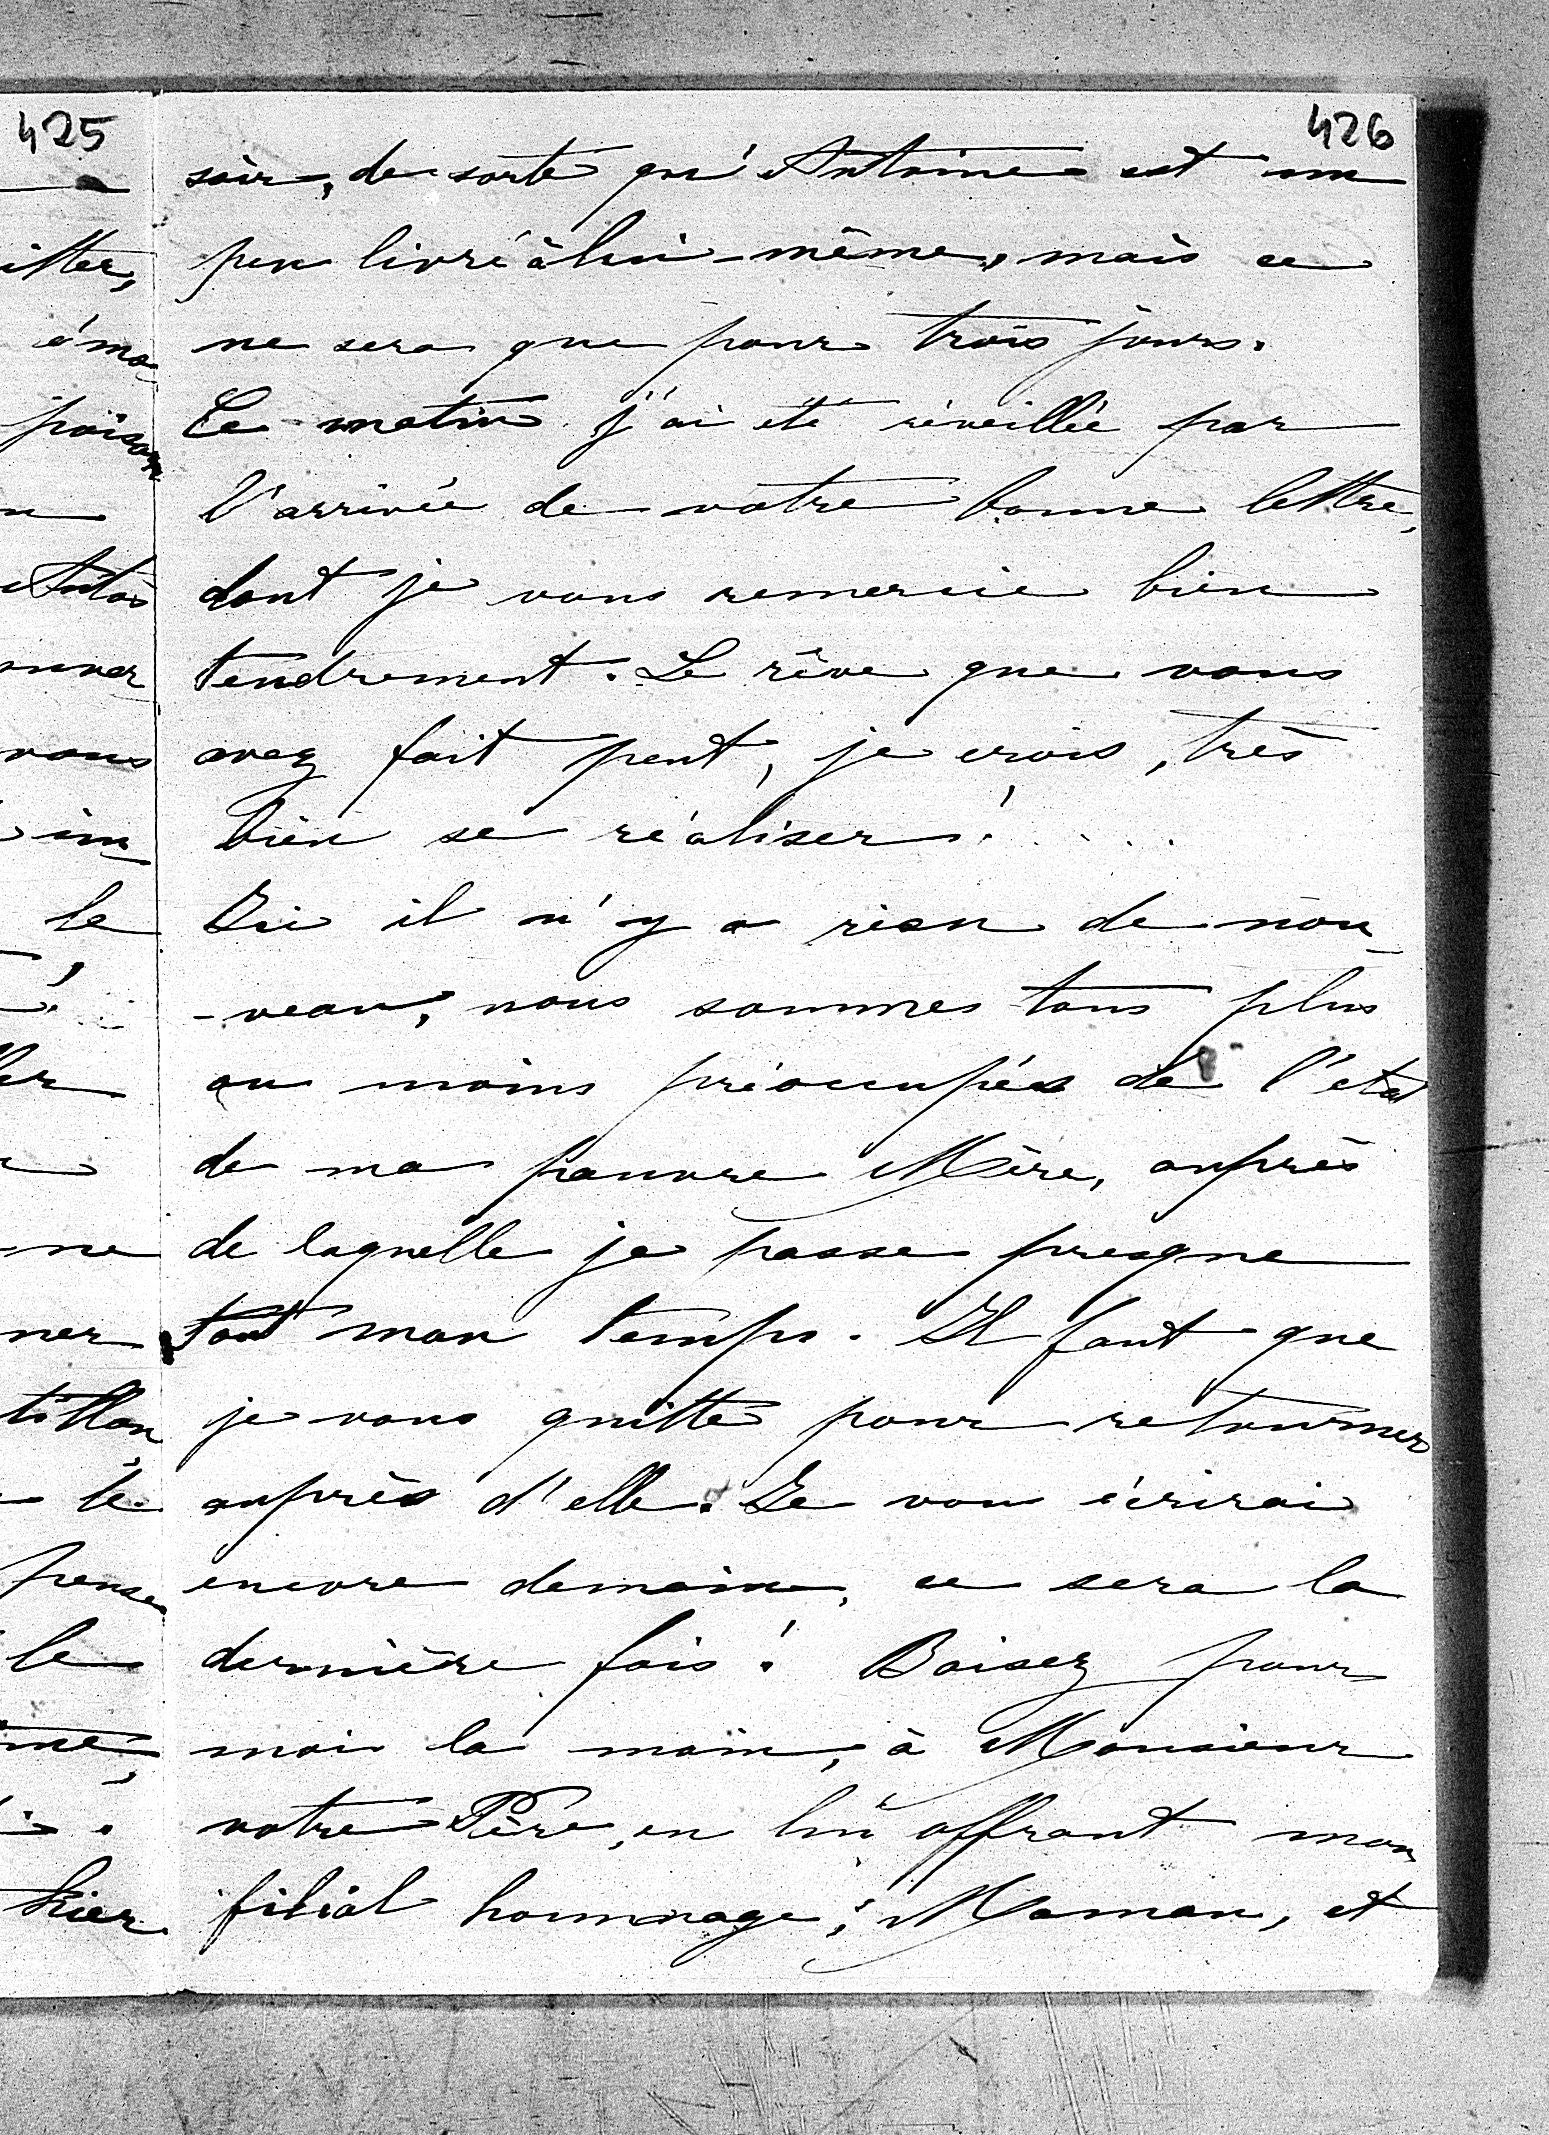 425
426
soir, de sorte qu'Antoine est un
peu livré à lui-même, mais ce
ne sera que pour trois jours.
Ce matin j'ai été réveillée par
l'arrivée de votre bonne lettre,
dont je vous remercie bien
tendrement. Le rêve que vous
avez fait peut, je crois, très
bien se réaliser! . . . .
Ici il n'y a rien de nou-
-veau, nous sommes tous plus
ou moins préoccupés de l'état
de ma pauvre Mère, auprès
de laquelle je passe presque
tout mon temps. Il faut que
je vous quitte pour retourner
auprès d'elle. Je vous écrirai
encore demain, ce sera la
dernière fois! Baisez pour
moi la main, à Monsieur
votre Père, en lui offrant mon
filial hommage; Maman, et